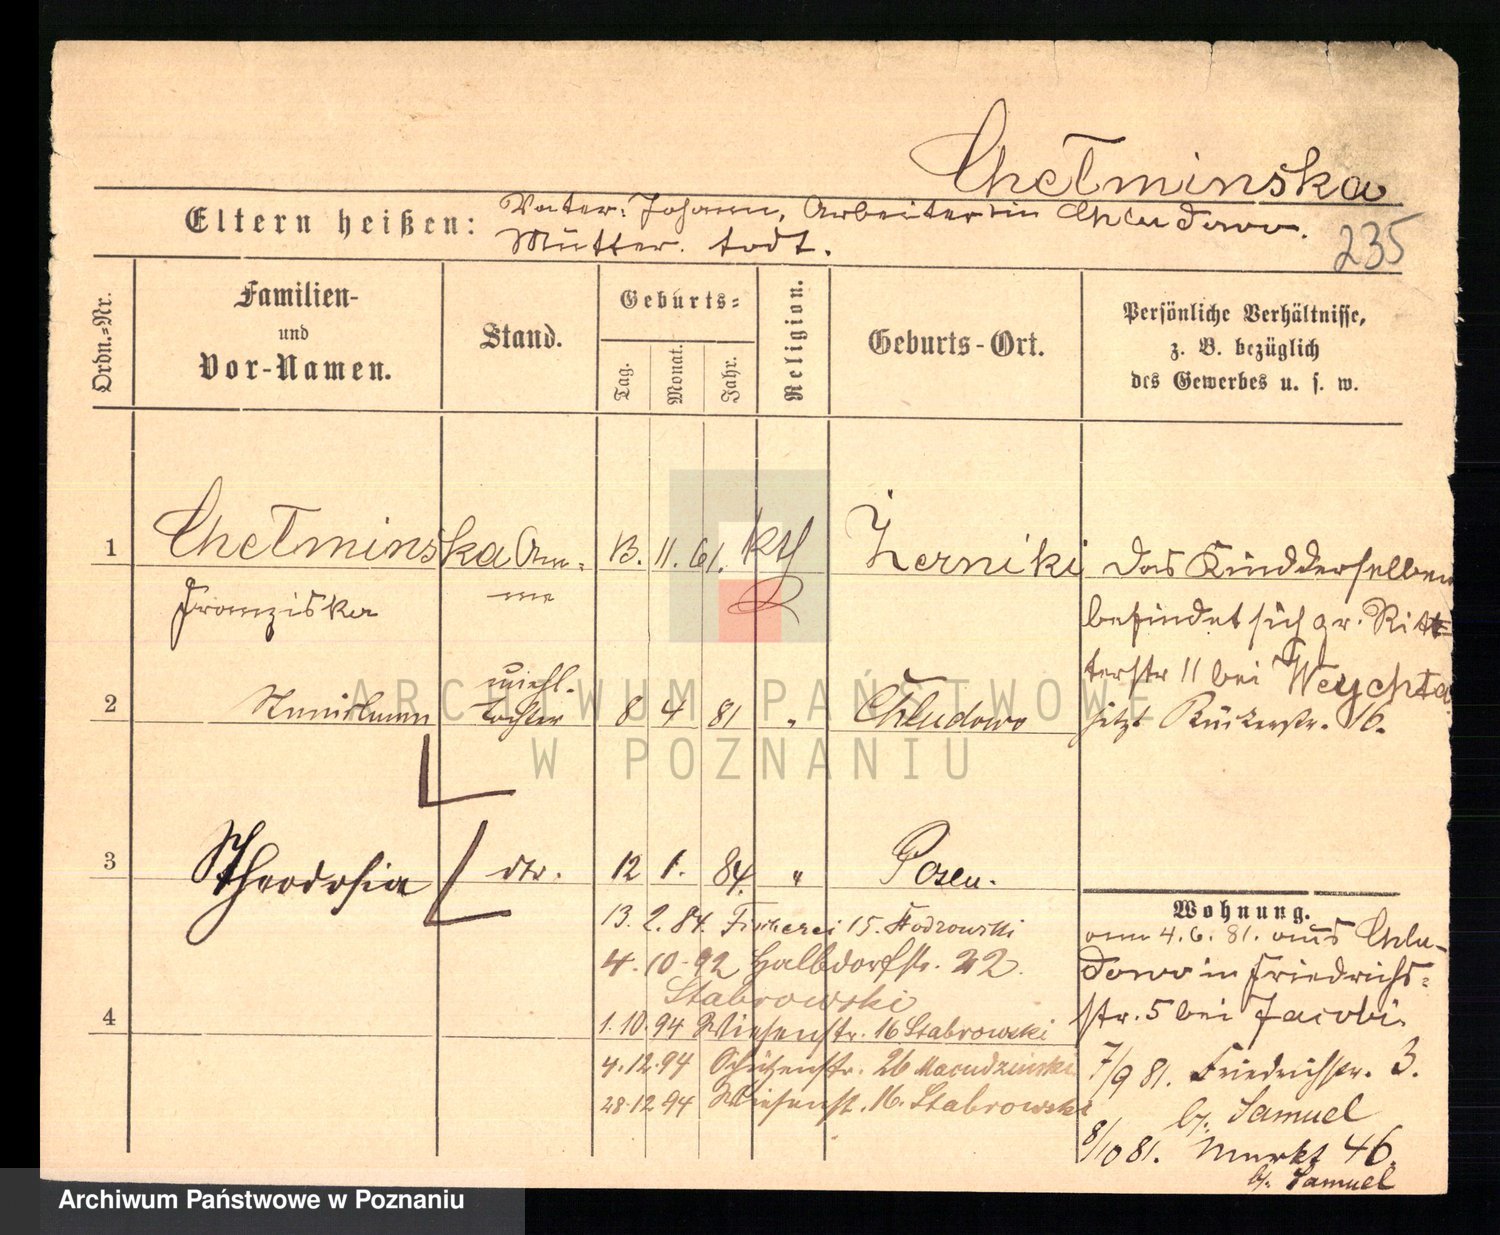 Chełminska
Eltern heißen: Vater: Johann, Arbeiter in Chludowo.
Mutter todt.
235
Ordn.-Nr.
Familien-
und
Vor-Namen.
Stand.
Geburts-
Tag.
Monat.
Jahr.
Religion.
Geburts-Ort.
Persönliche Verhältnisse,
z. B. bezüglich
des Gewerbes u. s. w.
1 Chełminska 13. 11. 61. kth Żerniki
Franziska
Das Kind derselben
befindet sich gr. Rit-
terstr 11 bei Weychta
jetzt Bäckerstr. 16.
2 unehl. Tochter 8 4 81 " Chludowo
3 Theodosia dto. 12 1. 84. " Posen.
13. 2. 84. Fischerei 15.
4. 10. 92 Halbdorfstr. 22.
Stabrowski
4
1. 10. 94 Wiesenstr. 16 Stabrowski
4. 12. 94 Schützenstr. 26
28. 12. 94 Wiesenst. 16. Stabrowski
Wohnung.
am 4. 6. 81. aus Chlu-
dowo in Friedrichs-
str. 5 bei Jacobi.
7/9 81. Friedrichstr. 3.
b/. Samuel
8/10 81. Markt 46.
b/. Samuel
ARCHIWUM PAŃSTWOWE
W POZNANIU
Archiwum Państwowe w Poznaniu